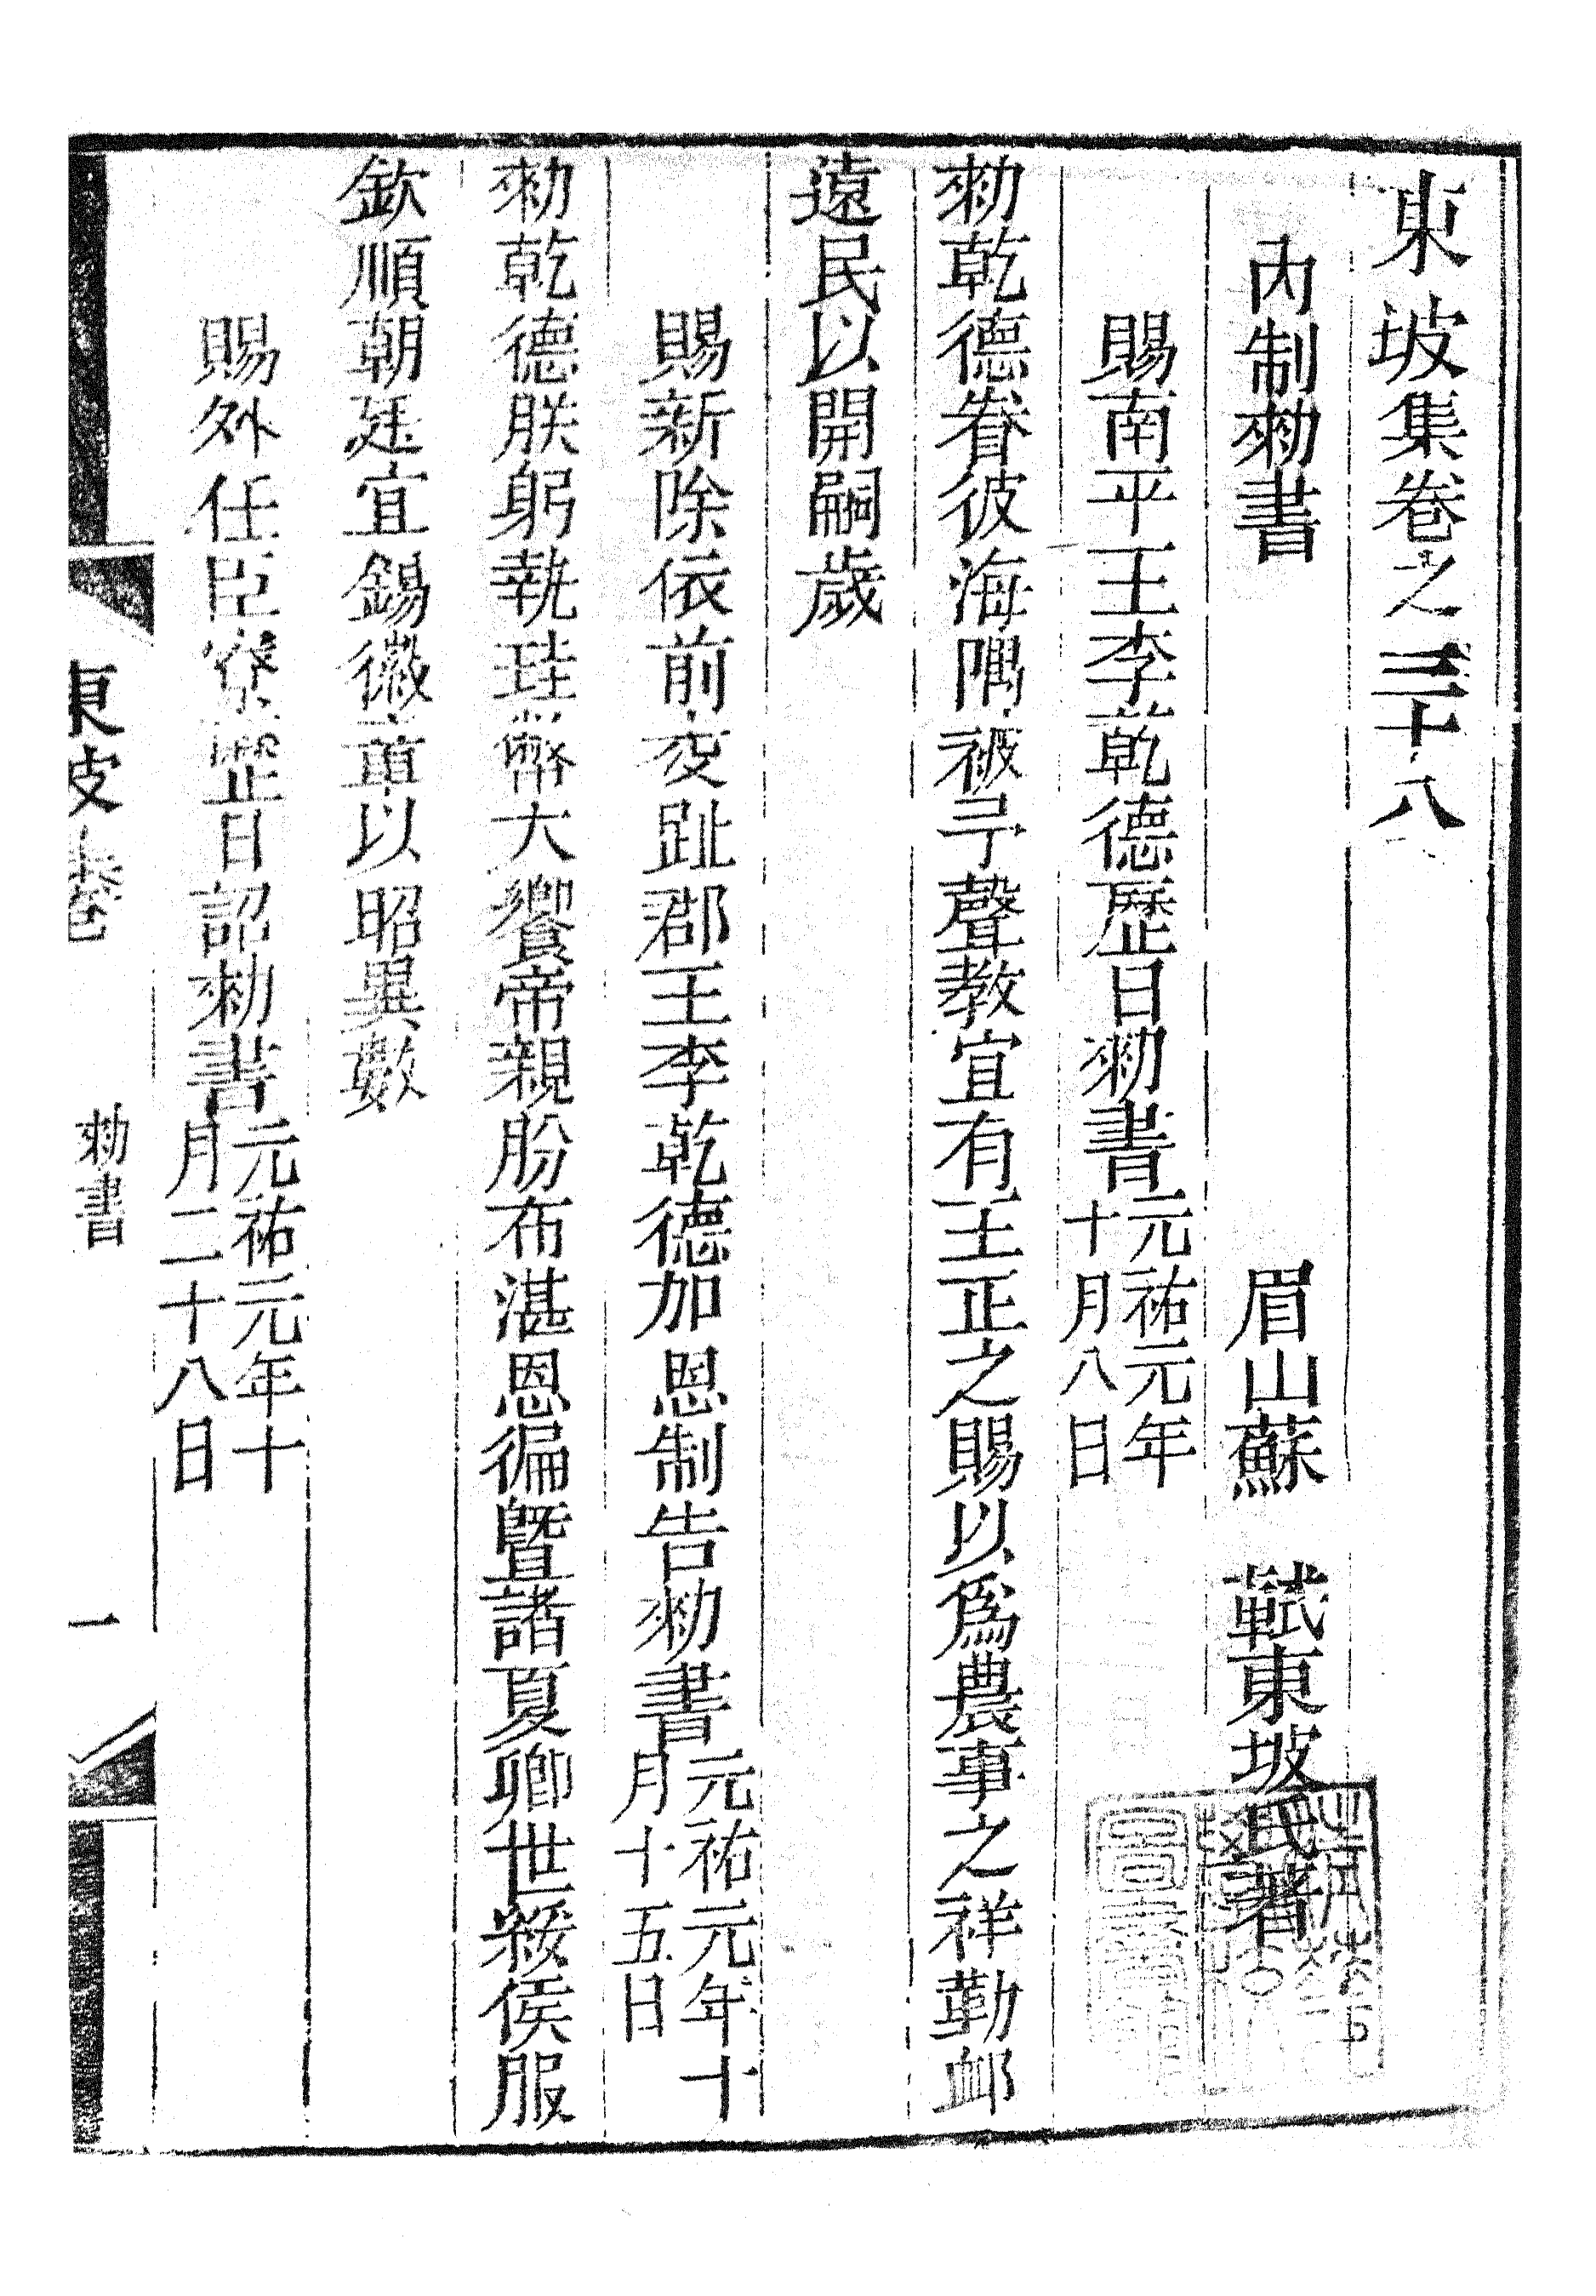 東坡集卷之三十八
內制勑書　眉山蘇　軾東坡氏著
賜南平王李乾德歷日勑書元祐元年十月八日
勑乾德眷彼海隅被予聲教宜有王正之賜以爲農事之祥勤卹
遠民以開嗣歲
賜新除依前交趾郡王李乾德加恩制告勑書元祐元年十月十五日
勑乾德朕躬執珪幣大饗帝親肦布湛恩徧曁諸夏卿世綏侯服
欽順朝廷宜錫徽章以昭異數
賜外任臣寮歷日詔勑書元祐元年十月二十八日
東坡卷　勑書　一